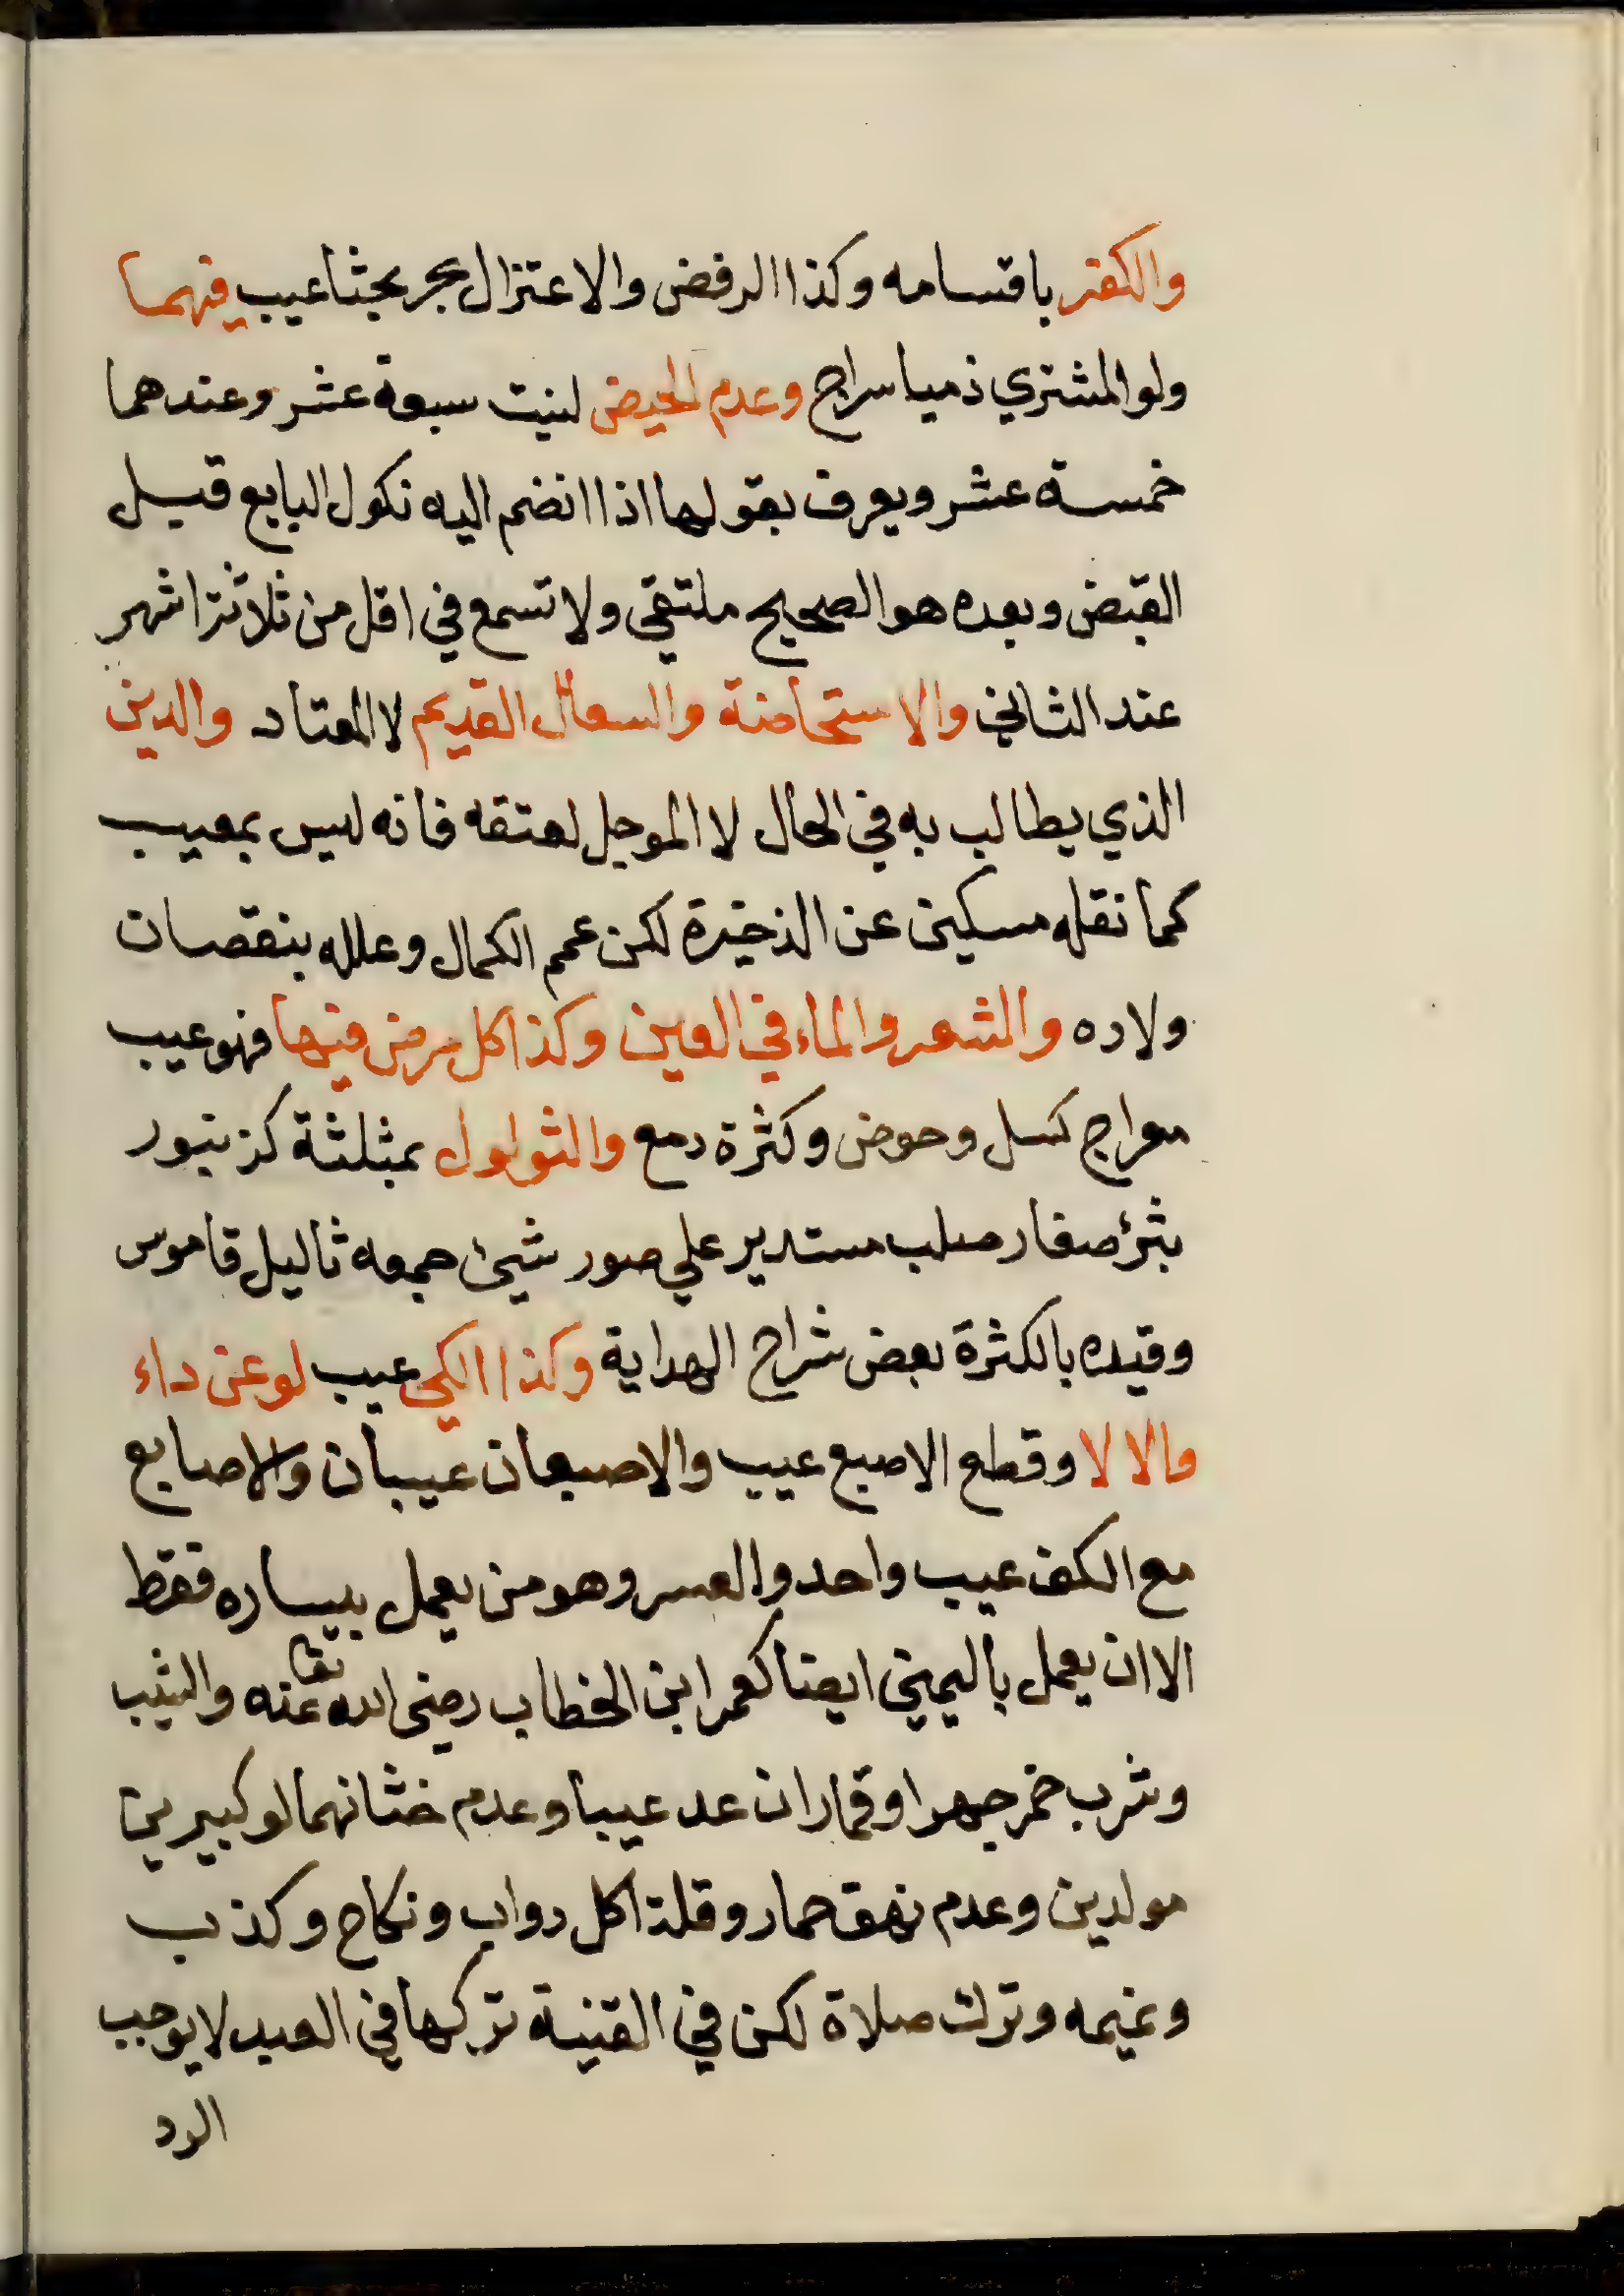 والكفر باقسامه وكذا الرفض والاعتزال بحر بحثا عيب فيهما
ولو المشتري ذميا سراج وعدم الحيض لبنت سبعة عشر وعندهما
خمسة عشر ويعرف بقولها اذا انضم اليه نكول البايع قبل
القبض وبعده هو الصحيح ملتقى ولا تسمع في اقل من ثلاثة اشهر
عند الثاني والاستحاضة والسعال القديم لا المعتاد والدين
الذي يطالب به في الحال لا الموجل لعتقه فانه ليس بعيب
كما نقله مسكين عن الذخيرة لكن عمم الكمال وعلله بنقصان
ولاده والشعر والماء في العين وكذا كل مرض فيها فهو عيب
معراج كسل وحوض وكثرة دمع والثولول بمثلثة كزنبور
بثر صغار صلب مستدير علي صور شيئ جمعه ثاليل قاموس
وقيده بالكثرة بعض شراح الهداية وكذا الكي عيب لو عن داء
والا لا وقطع الاصبع عيب والاصبعان عيبان والاصابع
مع الكف عيب واحد والعسر وهو من يعمل بيساره فقط
الا ان يعمل باليمين ايضا كعمر ابن الخطاب رضى الله تعا عنه والشيب
وشرب خمر جهرا وقمار ان عد عيبا وعدم ختانهما لو كبيرين
مولدين وعدم نهق حمار وقلة اكل دواب ونكاح وكذب
ونميمه وترك صلاة لكن في القنية تركها في العبد لا يوجب
الرد